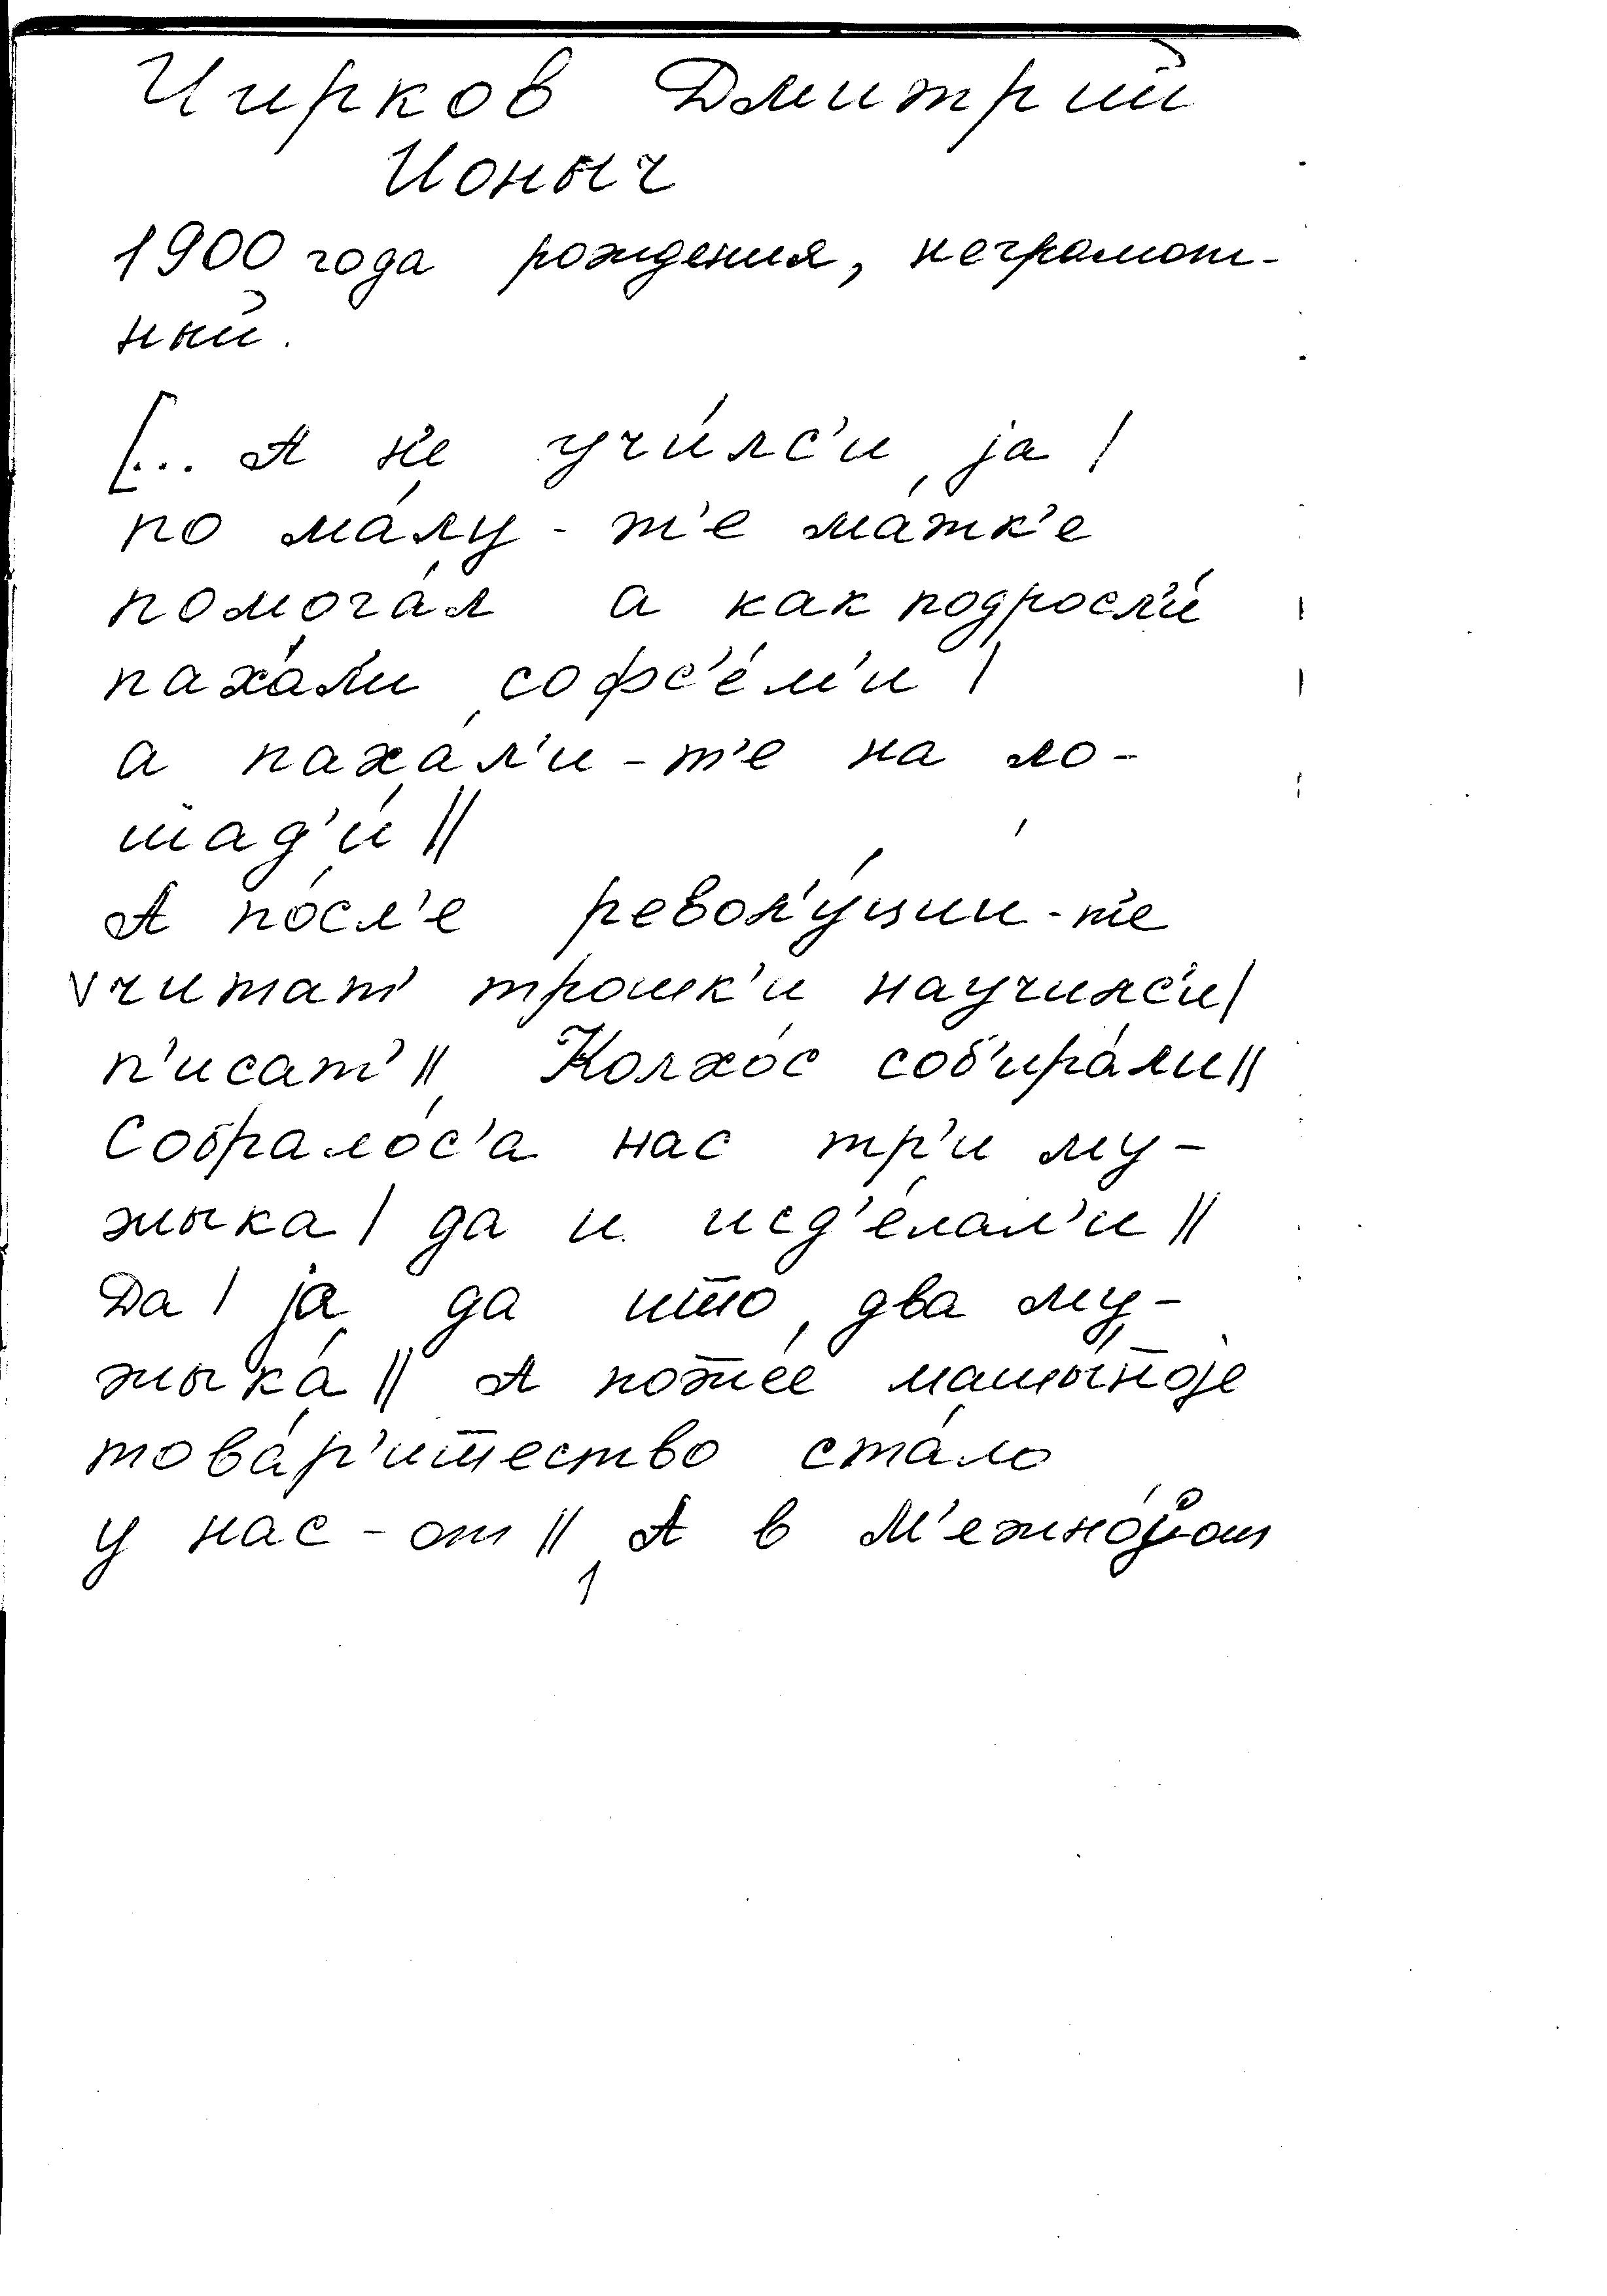 Чирков Дмитрий
Ионыч
1900 года рождения, неграмот-
ный.
[... А н'е учи́лс'и ја |
по ма́лу - т'е ма́тк'е
помога́л а как подросл'и́
паха́л'и софс'е́м'и |
а паха́л'и - т'е на ло-
шад'и́ ||
А по́сл'е револ'у́ции - т'е
читат' трошк'и научилс'и |
п'исат' || Колхо́с соб'ира́ли ||
Собрало́с'а нас тр'и му-
жыка | да и исд'е́лал'и ||
Да | ја да што два му-
жыка́ || А по́жеје машы́ноје
това́р'ишество ста́ло
у нас - от ||
1